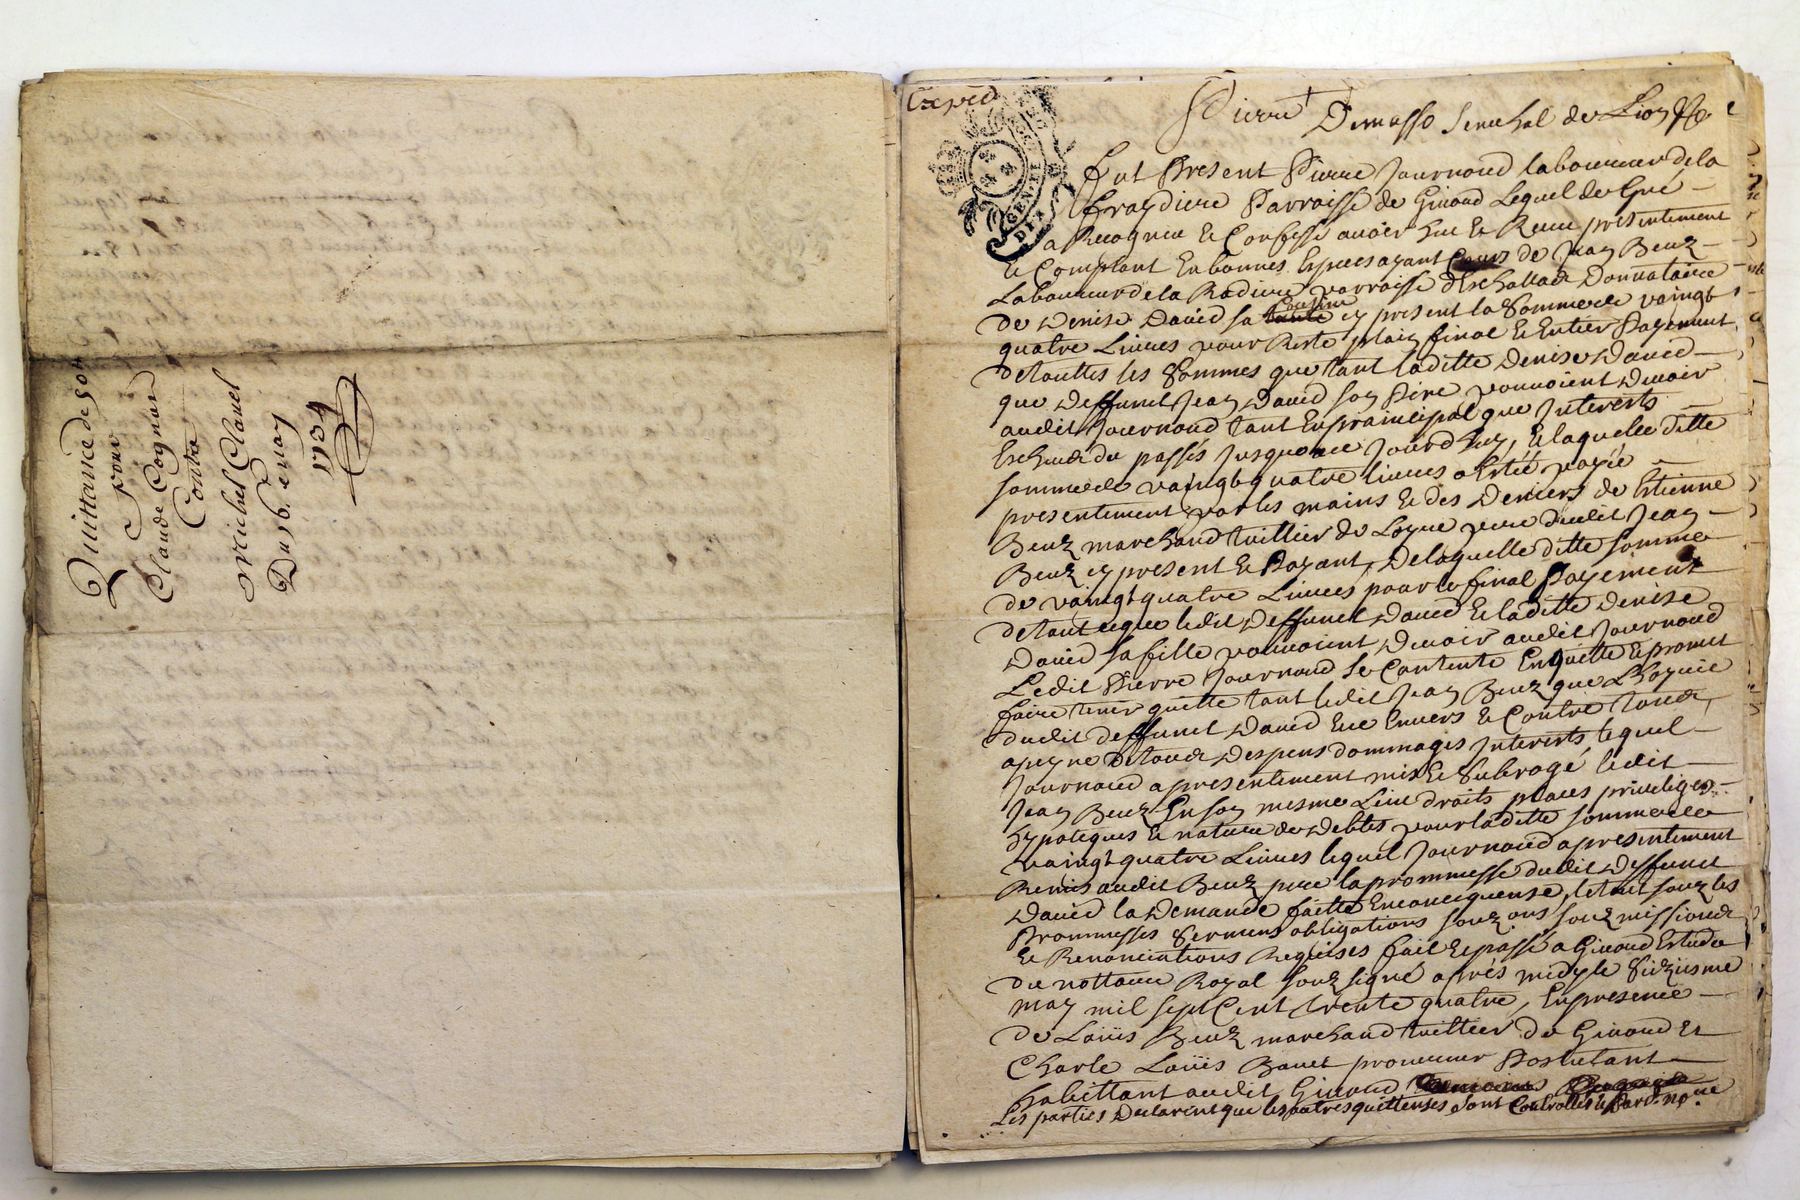 Quittance de 50#
pour
Claude Cognard
Contre
michel Clauel
Du 16e may
1734
Expéd
GEN DE
Pierre Demasso Senechal de Lion &c
fut Present Pierre Journoud laboureur de la
fraydiere Parroisse de Giuord Lequel de Gré
a Recogneu et Confessé auoir heu et Receu presentement
et Comptant En bonnes Especes ayant Cours de Jean Beuz
Laboureur de la Rodiere parroisse Donnataire
de Denise Dauid sa Cousine cy present la Somme de vaingt
quatre Liures pour Reste plain final et Entier Payement
de touttes les Sommes que tant laditte Denise Dauid
que deffunct Jean Dauid son Pere pouuoient Deuoir
audit Journoud tant En principal que Interests
Escheus du passés Jusqu'a ce Jourd'huy, Et laquelle ditte
somme de vaingt quatre liures a Esté payée
presentement par les mains et des Deniers de Etienne
Beuz marchand tuillier de Loyre pere dudit Jean
Beuz cy present et Payant, De laquelle ditte somme
de vaingt quatre Liures pour le final Payement
de tout ce que ledit Deffunct Dauid et laditte Denise
Dauid sa fille pouuoient Deuoir audit Journoud
Ledit Pierre Journoud se Contente En quitte et promet
faire tenir quitte tant ledit Jean Beuz que L'hoyrie
dudit deffunct Dauid Enuers et Contre tous,
a peyne de tous Despens dommages Interests lequel
Journoud a presentement mis et Subrogé ledit
Jean Beuz En son mesme Lieu droits places priuileges
hypoteques et nature de Debtes pour laditte somme de
vaingt quatre Liures lequel Journoud a presentement
Remis audit Beuz pere la prommesse dudit Deffunct
Dauid la Demande faitte En concequense, le tout souz les
Prommesses Sermens obligations souzmissions
et Renonciations Requises fait et passé a Giuord Estude
du nottaire Royal souzsigné après midy le Seizieme
may mil sept Cent trente quatre, En presence
de Loüis Beuz marchand tuillier de Giuord et
Charle Loüis Bonet procureur Postulant
habittant audit Giuord
Les parties Declarent que les autres quittenses sont Controllés